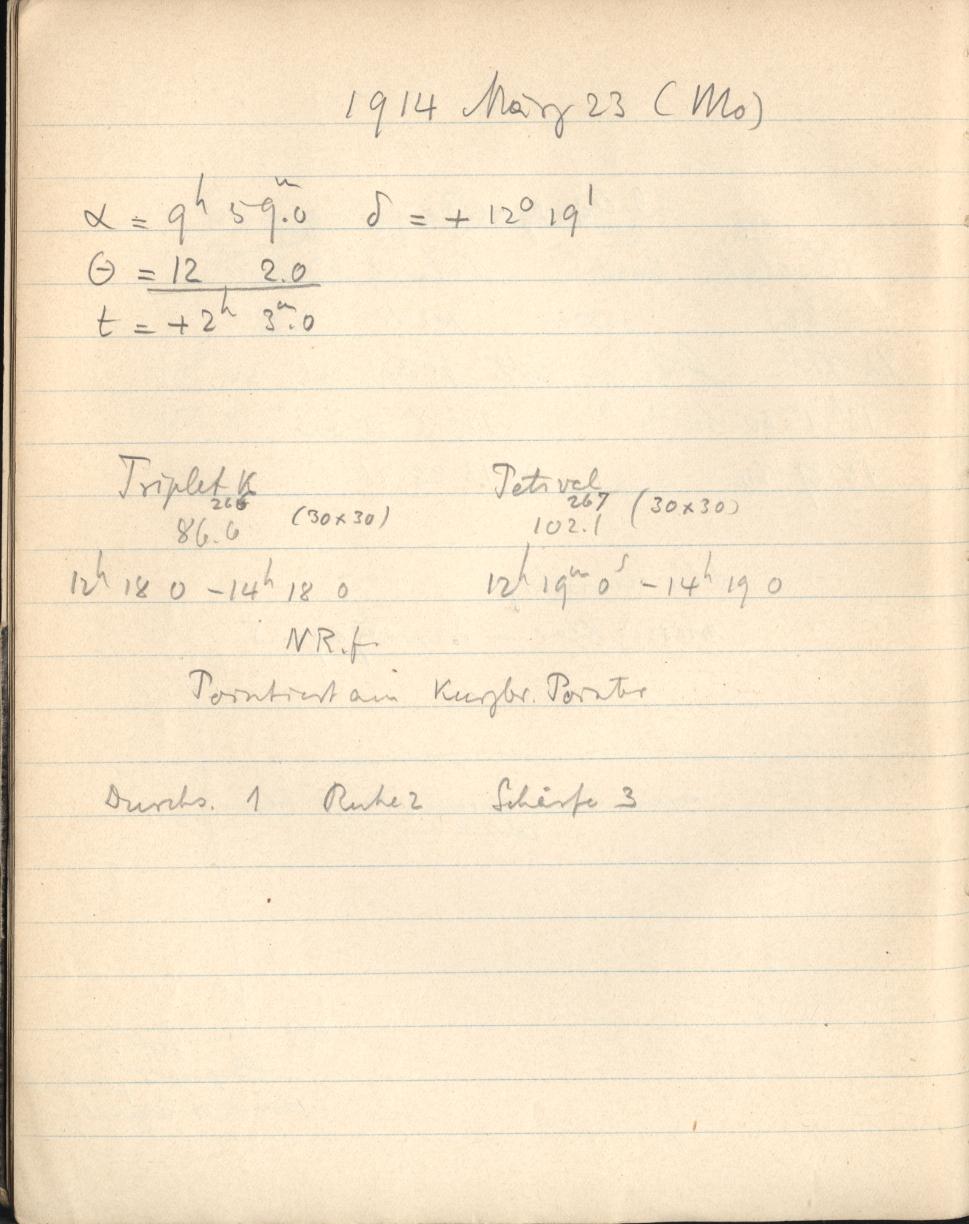 1914 März 23 (Mo)
α = 9h 59m.0 δ = + 12° 19'
Θ = 12 2.0
t = +2h 3m.0
Triplet K Petzval
266 267
86.6 (30x30) 102.1 (30x30)
12h 18 0 - 14h 18 0 12h 19m 0s - 14h 19 0
NR.f.
Pointiert am Kurzbr. Pointer
Durchs. 1 Ruhe 2 Schärfe 3